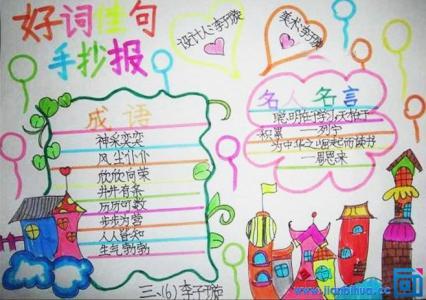 好词佳句
手抄报
设计人:李子璇
美术:李子璇
成语
神采奕奕
风尘仆仆
欣欣向荣
井井有条
历历可数
步步为营
人人皆知
生气勃勃
名人名言
聪明在于学习,天才在于
积累 ——列宁
为中华之崛起而读书
——周恩来
三、(6) 李子璇
www.jianbihua.cc